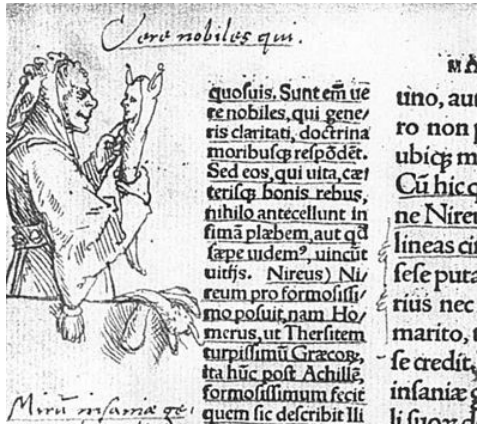 Vere nobiles qui.
quoſuis. Sunt em̄ ue
re nobiles, qui gene/
ris claritati, doctrina
moribuſqꝫ reſpōdēt.
Sed eos, qui uita, cæt
teriſqꝫ bonis rebus,
nihilo antecellunt in
fimā plæbem, aut qd̄
ſæpe uidemꝰ, uincūt
uitijs. Nireus) Ni/
reum pro formoſiſſi
mo poſuit, nam Ho/
merus, ut Therſitem
turpiſſimū Græcoꝝ,
ita hūc poſt Achillē,
formoſiſſimum fecit
quem ſic deſcribit Ili
Mirū inſaniæ ge.
MA
uno, au
ro non
ubiqꝫ m
Cū hic q
ne Nireu
lineas ci
ſeſe puta
rius nec
marito,
ſe credit,
inſaniæ g